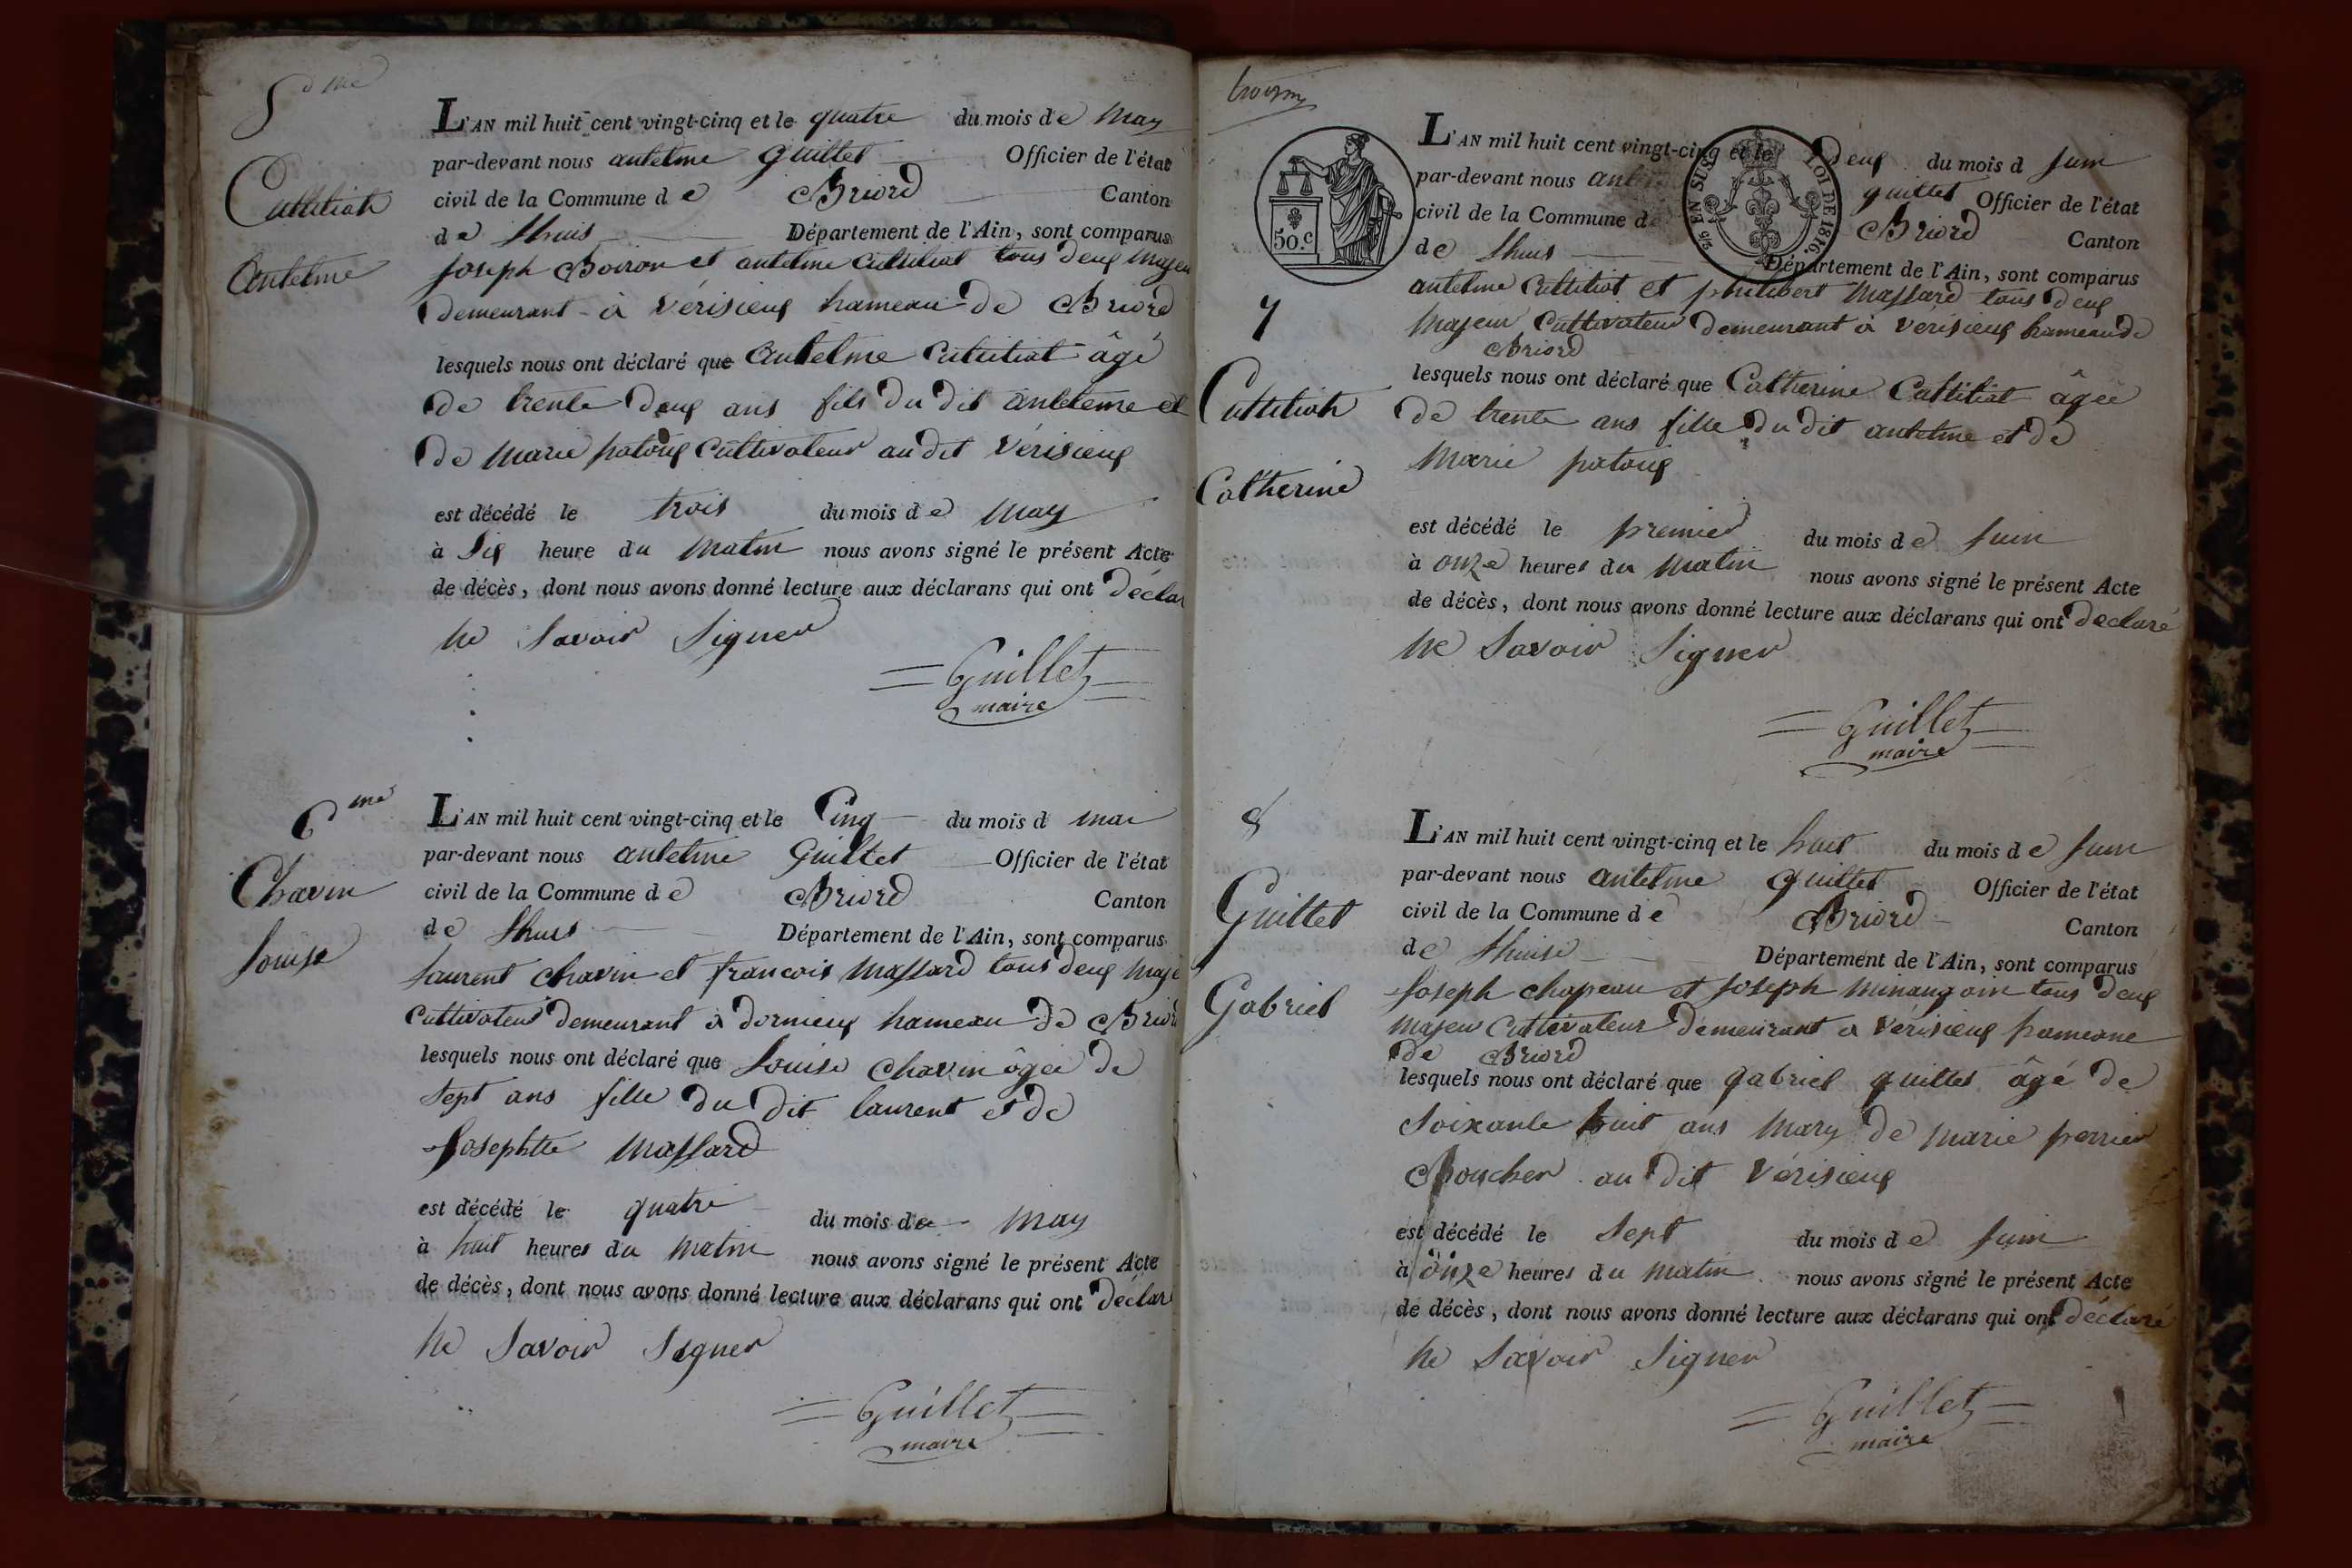 5me
Cuttitiat
Antelme
L'AN mil huit cent vingt-cinq et le quatre du mois de May
par-devant nous antelme Guillet Officier de l'état
civil de la Commune de Briord Canton
de Lhuis Département de l'Ain, sont comparus
Joseph Boiron et antelme Cuttitiat tous deux Majeu
demeurant à Vérisieux hameau de Briord
lesquels nous ont déclaré que Antelme Cuttitiat âgé
de trente deux ans fils du dit Antelme et
de Marie patoux Cultivateur au dit Vérisieux
est décédé le trois du mois de May
à Six heure du Matin nous avons signé le présent Acte
de décès, dont nous avons donné lecture aux déclarans qui ont déclar
ne Savoir Signer
Guillet
maire
6me
Chavin
Louise
L'AN mil huit cent vingt-cinq et le Cinq du mois d mai
par-devant nous antelme Guillet Officier de l'état
civil de la Commune de Briord Canton
de Lhuis Département de l'Ain, sont comparus
Laurent Chavin et francois Massard tous deux Maje
Cultivateur demeurant à dornieux hameau de Briord
lesquels nous ont déclaré que Louise Chavin âgée de
Sept ans fille du dit laurent et de
Josephtte Massard
est décédé le quatre du mois de May
à huit heures du Matin nous avons signé le présent Acte
de décès, dont nous avons donné lecture aux déclarans qui ont déclar
ne Savoir Signer
Guillet
maire
50.c
EN SUS
LOI DE 1816
7
Cuttitiat
Catherine
L'AN mil huit cent vingt-cinq et le Deux du mois d Juin
par-devant nous guillet Officier de l'état
civil de la Commune de Briord Canton
de Lhuis Département de l'Ain, sont comparus
antelme Cuttitiat et philibert Massard tous deux
Majeur Cultivateur demeurant à Vérisieux hameau de
Briord
lesquels nous ont déclaré que Catherine Cuttitiat âgée
de trente ans fille du dit antelme et de
Marie patoux
est décédé le premier du mois de Juin
à onze heures du Matin nous avons signé le présent Acte
de décès, dont nous avons donné lecture aux déclarans qui ont declaré
ne Savoir Signer
Guillet
maire
8
Guillet
Gabriel
L'AN mil huit cent vingt-cinq et le huit du mois de Juin
par-devant nous antelme guillet Officier de l'état
civil de la Commune de Briord Canton
de Lhuise Département de l'Ain, sont comparus
Joseph chapeau et Joseph minangoin tous deux
Majeur Cultivateur demeurant a Vérisieux hameaue
de Briord
lesquels nous ont déclaré que gabriel guillet âgé de
Soixante huit ans Mary de Marie perrier
Boucher au dit Vérisieux
est décédé le Sept du mois de Juin
à onze heures du Matin nous avons signé le présent Acte
de décès, dont nous avons donné lecture aux déclarans qui ont déclaré
ne Savoir Signer
Guillet
maire